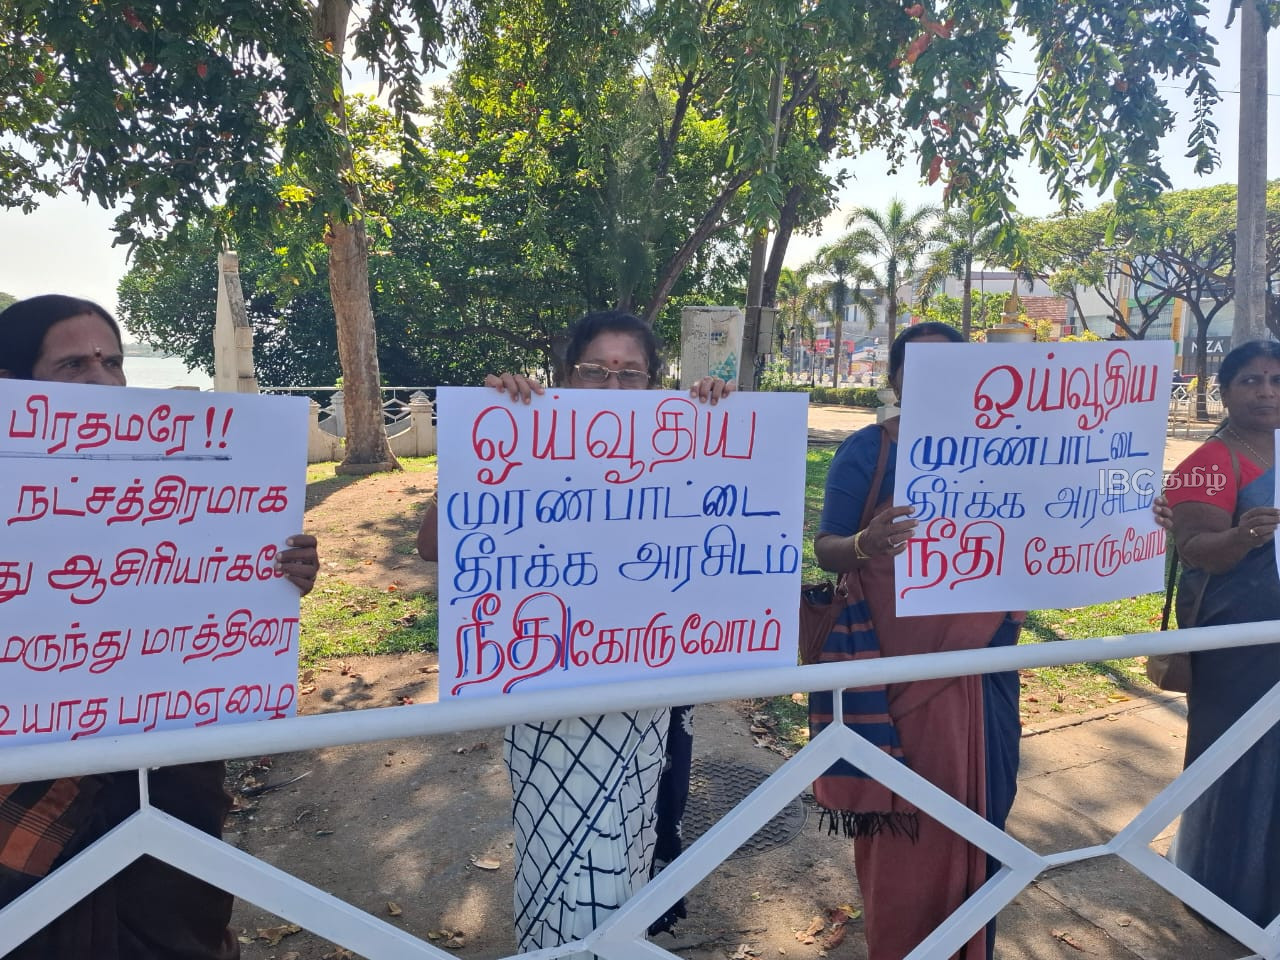 பிரதமரே!!
நட்சத்திரமாக
து ஆசிரியர்களே
மருந்து மாத்திரை
உயாத பரமஏழை
ஓய்வூதிய
முரண்பாட்டை
தீர்க்க அரசிடம்
நீதி கோருவோம்
ஓய்வூதிய
முரண்பாட்டை
தீர்க்க அரசிடம்
நீதி கோருவோம்
IBC தமிழ்
NIZA